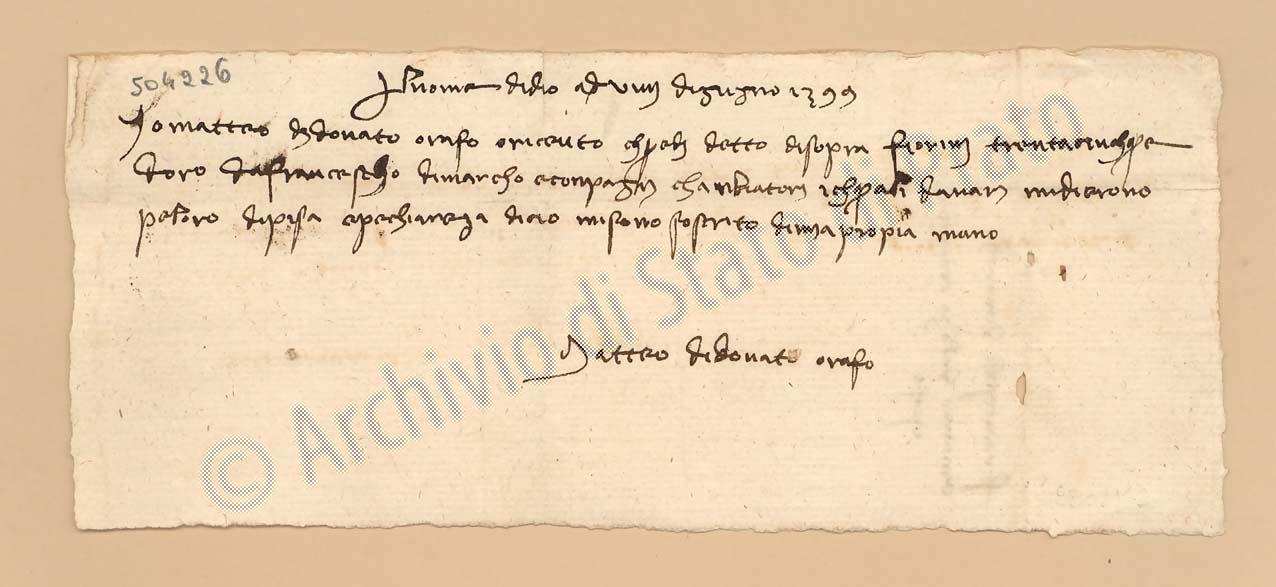 504226
Al nome didio ad viiii digugno 1399
Io matteo didonato orafo oriceuto detto disopra fiorini trentacinque
doro dafrancescho dimarcho echonpagni chanbiatori i danari midierono
peloro dipisa epechiareza dicio misono soscrito dimia propia mano
Matteo didonato orafo
© Archivio di Stato di Prato